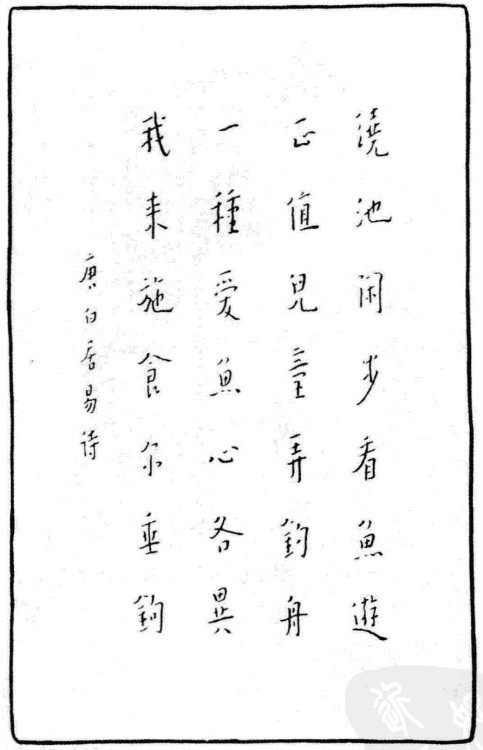 澆池闲步看魚遊
正值兒童弄釣舟
一種愛魚心各異
我来施食尔垂鉤
唐白居易诗